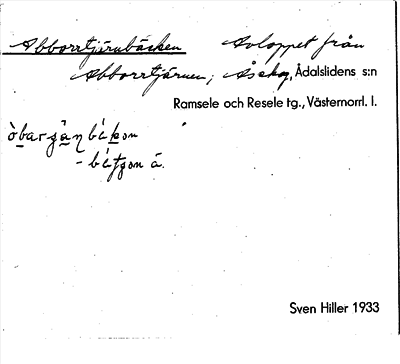 Abborrtjärnbäcken Avloppet från
Abborrtjärnen; Åskog, Ådalslidens s:n
Ramsele och Resele tg., Västernorrl. l.
Sven Hiller 1933